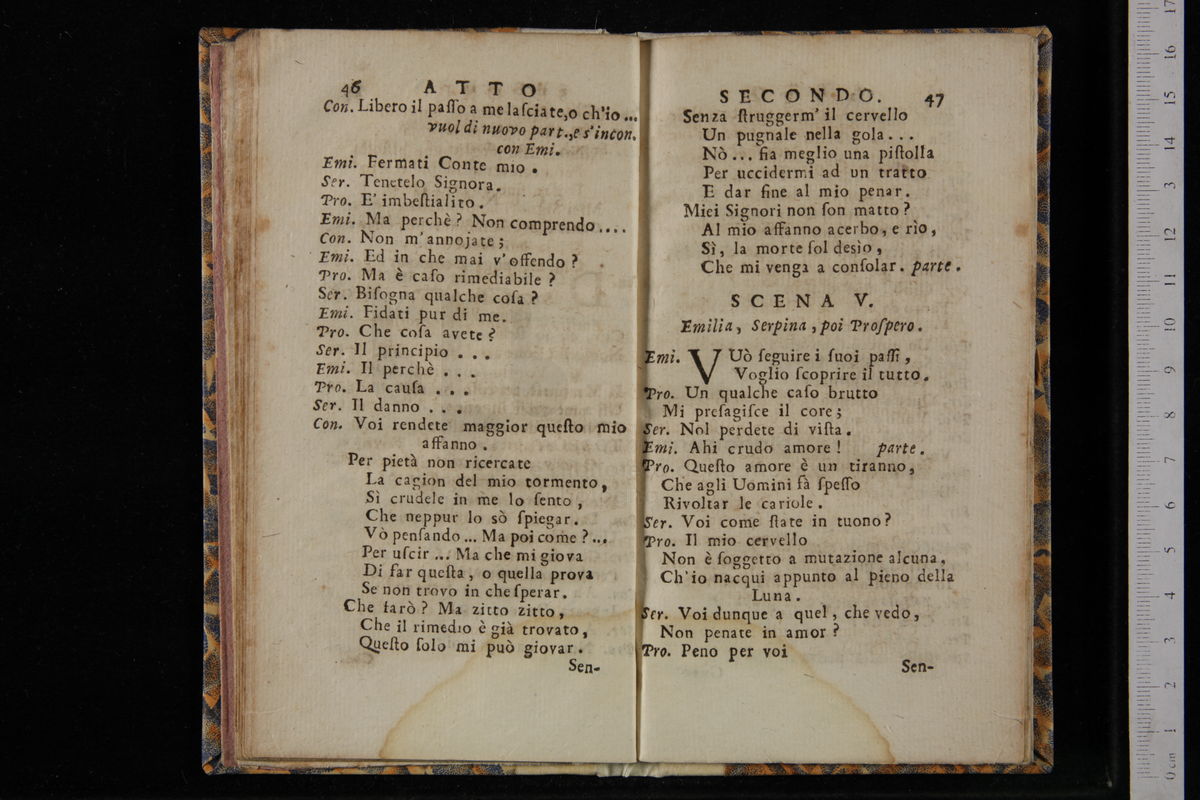 46 ATTO
Con. Libero il paſſo a me laſciate, o ch'io ...
vuol di nuovo part., e s'incon.
con Emi.
Emi. Fermati Conte mio .
Ser. Tenetelo Signora.
Pro. E' imbeſtialito.
Emi. Ma perchè? Non comprendo ....
Con. Non m'annojate;
Emi. Ed in che mai v'offendo?
Pro. Ma è caſo rimediabile?
Ser. Biſogna qualche coſa?
Emi. Fidati pur di me.
Pro. Che coſa avete?
Ser. Il principio ...
Emi. Il perchè ...
Pro. La cauſa ...
Ser. Il danno ...
Con. Voi rendete maggior queſto mio
affanno.
Per pietà non ricercate
La cagion del mio tormento,
Sì crudele in me lo ſento,
Che neppur lo sò ſpiegar.
Vò penſando ... Ma poi come? ...
Per uſcir ... Ma che mi giova
Di far queſta, o quella prova
Se non trovo in che ſperar.
Che farò? Ma zitto zitto,
Che il rimedio è già trovato,
Queſto ſolo mi può giovar.
Sen-
SECONDO. 47
Senza ſtruggerm' il cervello
Un pugnale nella gola...
Nò ... fia meglio una piſtolla
Per uccidermi ad un tratto
E dar fine al mio penar.
Miei Signori non ſon matto?
Al mio affanno acerbo, e rìo,
Sì, la morte ſol desìo,
Che mi venga a conſolar. parte.
SCENA V.
Emilia, Serpina, poi Proſpero.
Emi. VUò ſeguire i ſuoi paſſi,
Voglio ſcoprire il tutto.
Pro. Un qualche caſo brutto
Mi preſagiſce il core;
Ser. Nol perdete di viſta.
Emi. Ahi crudo amore! parte.
Pro. Queſto amore è un tiranno,
Che agli Uomini fà ſpeſſo
Rivoltar le cariole.
Ser. Voi come ſtate in tuono?
Pro. Il mio cervello
Non è ſoggetto a mutazione alcuna,
Ch'io nacqui appunto al pieno della
Luna.
Ser. Voi dunque a quel, che vedo,
Non penate in amor?
Pro. Peno per voi
Sen-
0 cm 1 2 3 4 5 6 7 8 9 10 11 12 13 14 15 16 17